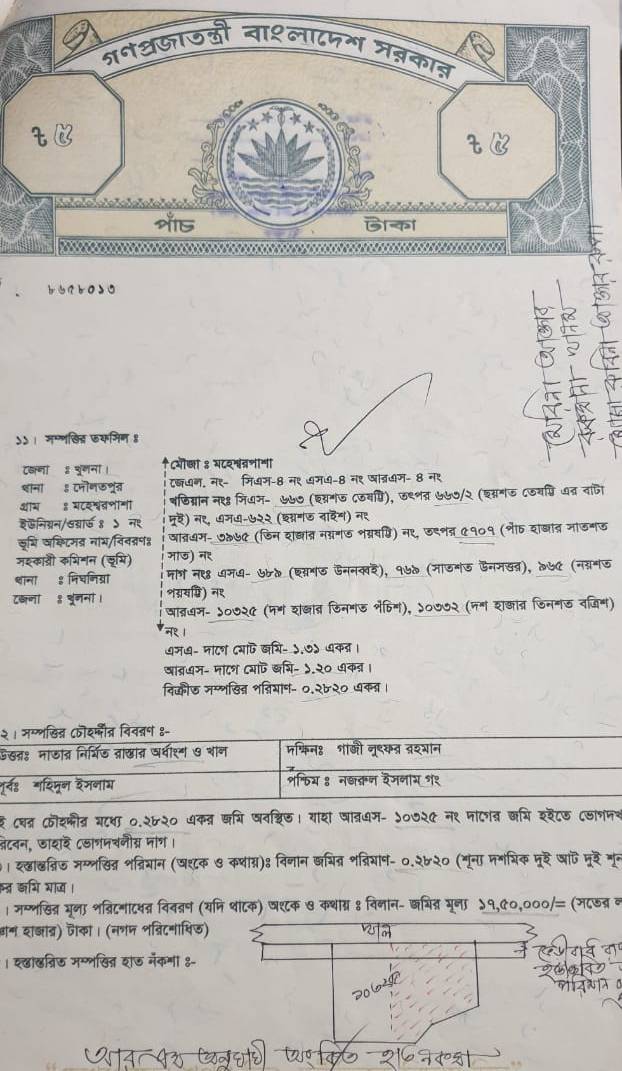 গণপ্রজাতন্ত্রী বাংলাদেশ সরকার
৳ ৫
৳ ৫
পাঁচ টাকা
৮৬৫৮০১৩
১১। সম্পত্তির তফসিল ঃ
জেলা ঃ খুলনা।
থানা ঃ দৌলতপুর
গ্রাম ঃ মহেশ্বরপাশা
ইউনিয়ন/ওয়ার্ড ঃ ১ নং
ভূমি অফিসের নাম/বিবরণঃ
সহকারী কমিশন (ভূমি)
থানা ঃ
জেলা ঃ খুলনা।
মৌজা ঃ মহেশ্বরপাশা
জে,এল, নং- সিএস-৪ নং এসএ-৪ নং আরএস- ৪ নং
খতিয়ান নংঃ সিএস- ৬৬৩ (ছয়শত তেষট্টি), তৎপর ৬৬৩/২ (ছয়শত তেষট্টি এর বাটা
দুই) নং, এসএ-৬২২ (ছয়শত বাইশ) নং
আরএস- ৩৯৬৫ (তিন হাজার নয়শত পঁয়ষট্টি) নং, তৎপর ৫৭০৭ (পাঁচ হাজার সাতশত
সাত) নং
দাগ নংঃ এসএ- ৬৮৯ (ছয়শত ঊননব্বই), ৭৬৯ (সাতশত ঊনসত্তর), ৯৬৫ (নয়শত
পঁয়ষট্টি) নং
আরএস- ১০৩২৫ (দশ হাজার তিনশত পঁচিশ), ১০৩৩২ (দশ হাজার তিনশত বত্রিশ)
নং।
এসএ- দাগে মোট জমি- ১.৩১ একর।
আরএস- দাগে মোট জমি- ১.২০ একর।
বিক্রীত সম্পত্তির পরিমাণ- ০.২৮২০ একর।
২। সম্পত্তির চৌহদ্দীর বিবরণ ঃ-
উত্তরঃ দাতার নির্মিত রাস্তার অর্ধাংশ ও খাল
দক্ষিনঃ গাজী লুৎফর রহমান
পূর্বঃ শহিদুল ইসলাম
পশ্চিম ঃ নজরুল ইসলাম গং
এই ঘের চৌহদ্দীর মধ্যে ০.২৮২০ একর জমি অবস্থিত। যাহা আরএস- ১০৩২৫ নং দাগের জমি হইতে
করিবেন, উহাই দাগ।
৩। হস্তান্তরিত সম্পত্তির পরিমাণ (অংকে ও কথায়)ঃ বিলান জমির পরিমাণ- ০.২৮২০ (শূন্য দশমিক দুই আট দুই শূন্য)
একর জমি মাত্র।
। সম্পত্তির মূল্য পরিশোধের বিবরণ (যদি থাকে) অংকে ও কথায় ঃ বিলান- জমির মূল্য ১৭,৫০,০০০/= (সতের লক্ষ
হাজার) টাকা। (নগদ পরিশোধিত)
। হস্তান্তরিত সম্পত্তির হাত নকশা ঃ-
খাল
১০৩২৫
অনুযায়ী হাত নকশা